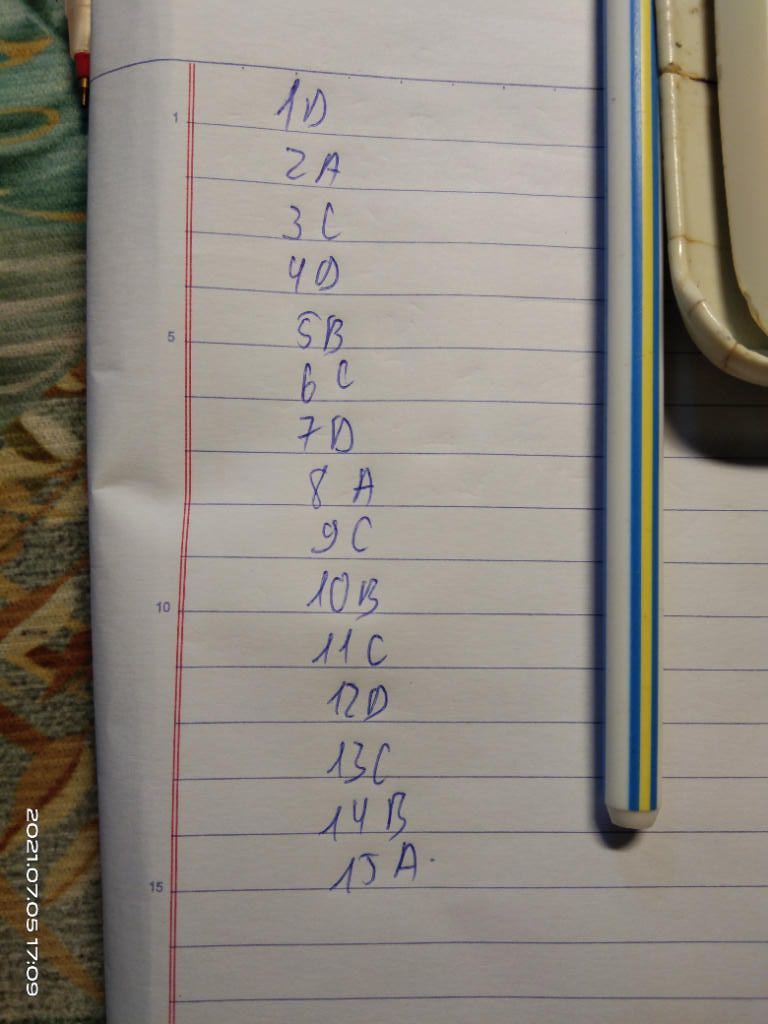 1 1D
2A
3C
4D
5 5B
6C
7D
8 A
9C
10 10B
11C
12D
13C
14B
15 15A.
2021.07.05 17:09